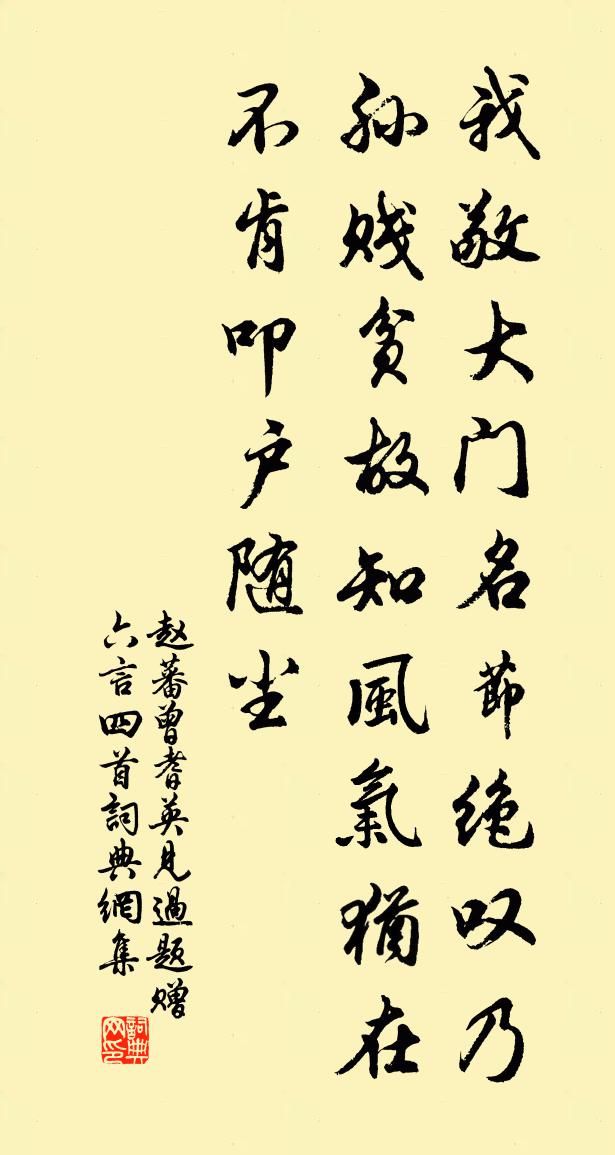 我敬大门名節绝叹乃
孙贱贫故知風氣犹在
不肯叩户随尘
赵蕃曾耆英見過题赠
六言四首詞典網集
詞典网印